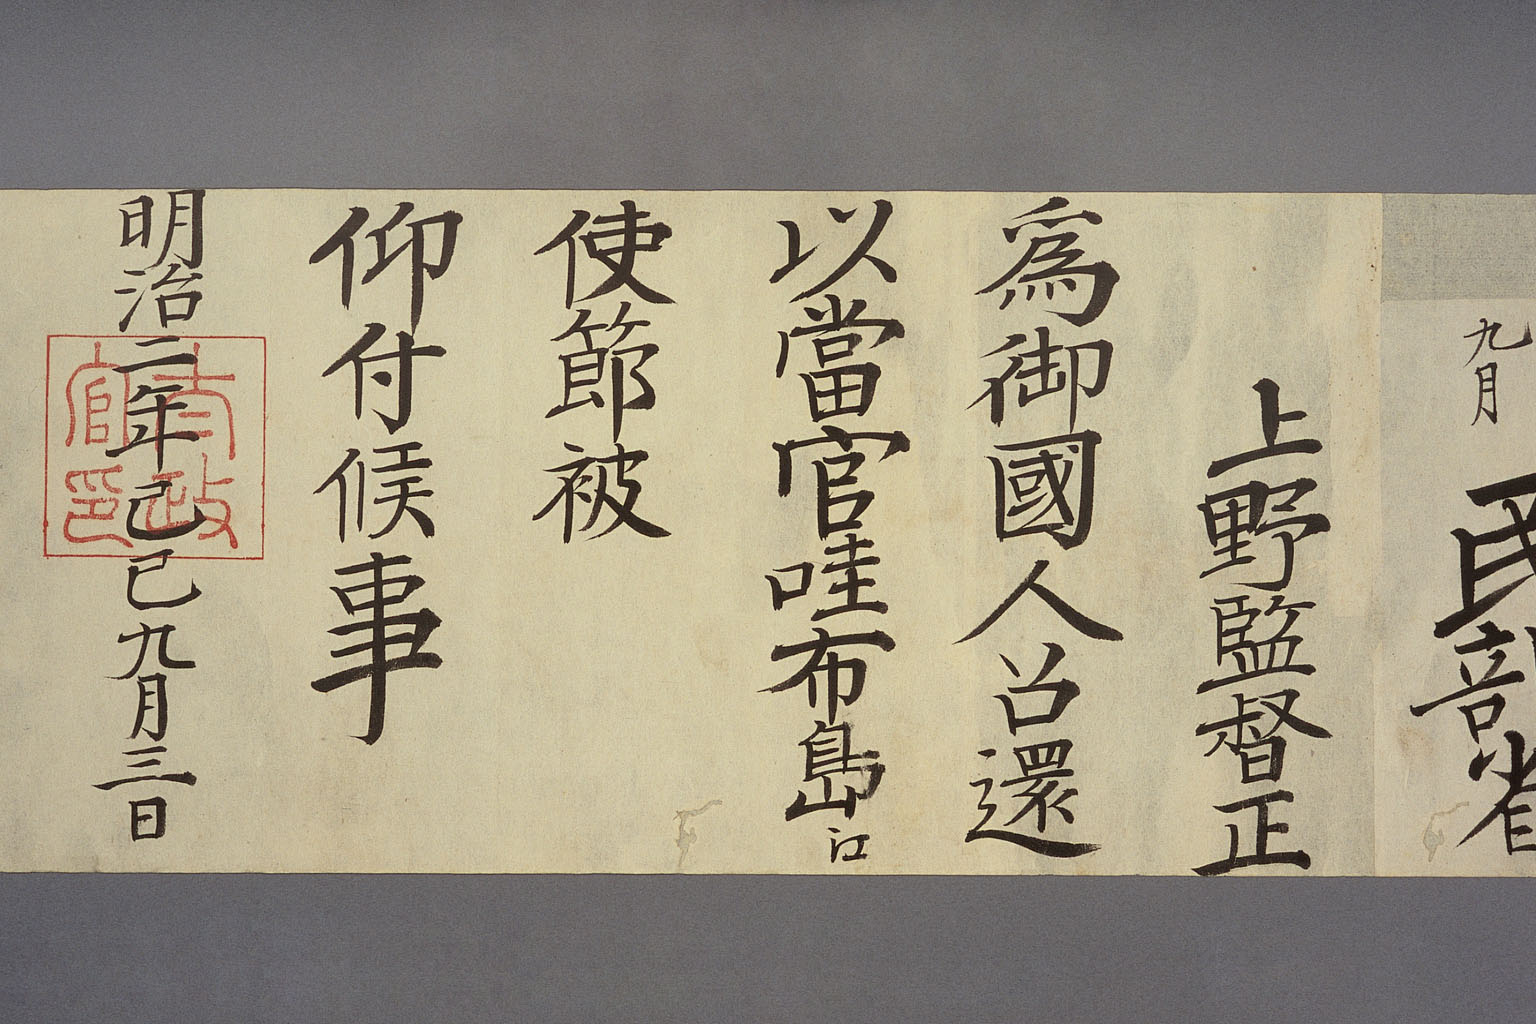 九月
民部省
上野監督正
爲御國人召還
以當官哇布島江
使節被
仰付候事
明治二年己巳九月三日
太政官印